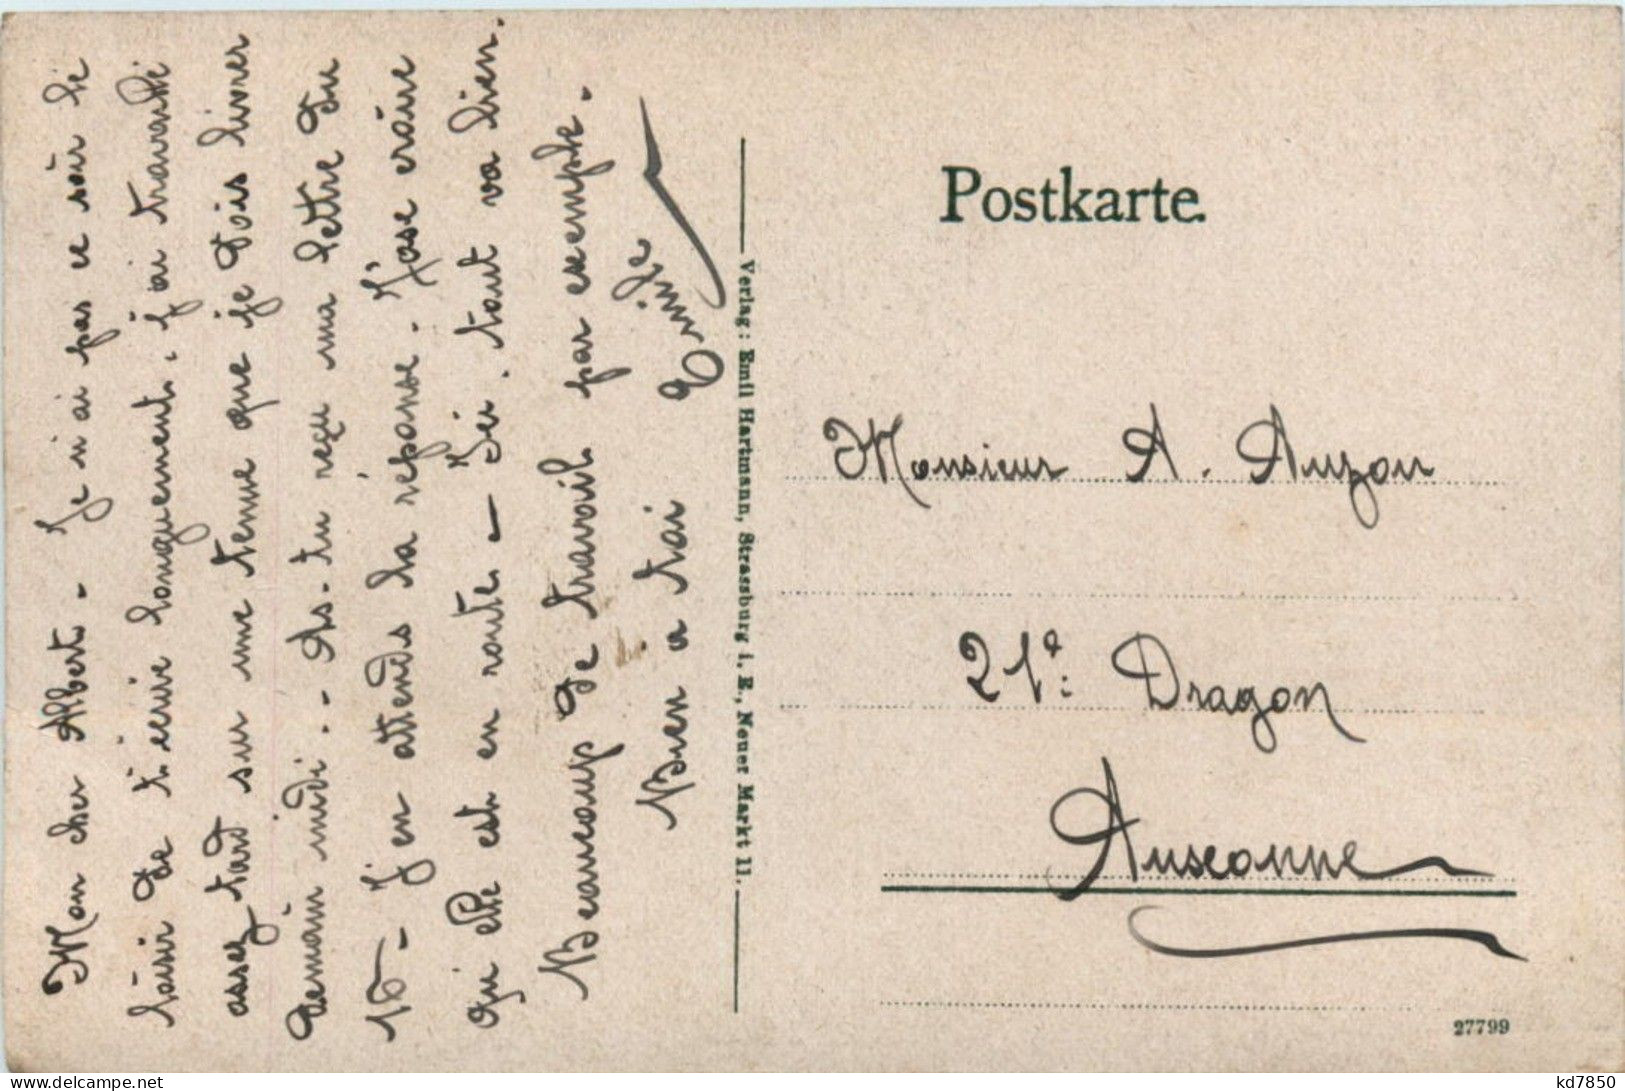 Mon cher Albert. - Je n'ai pas ce soir le
loisir de t'écrire longuement. J'ai travaillé
assez tard sur une tenue que je dois livrer
demain midi. - As-tu reçu ma lettre du
16 - J'en attends la réponse. J'ose croire
qui elle est en route. - Ici, tout va bien.
Beaucoup de travail par exemple.
Bien à toi
Emile
Verlag: Emil Hartmann, Strassburg i. E., Neuer Markt 11.
Postkarte.
Monsieur A. Auzon
21e: Dragon
Auxonne
27799
kd7850
www.delcampe.net